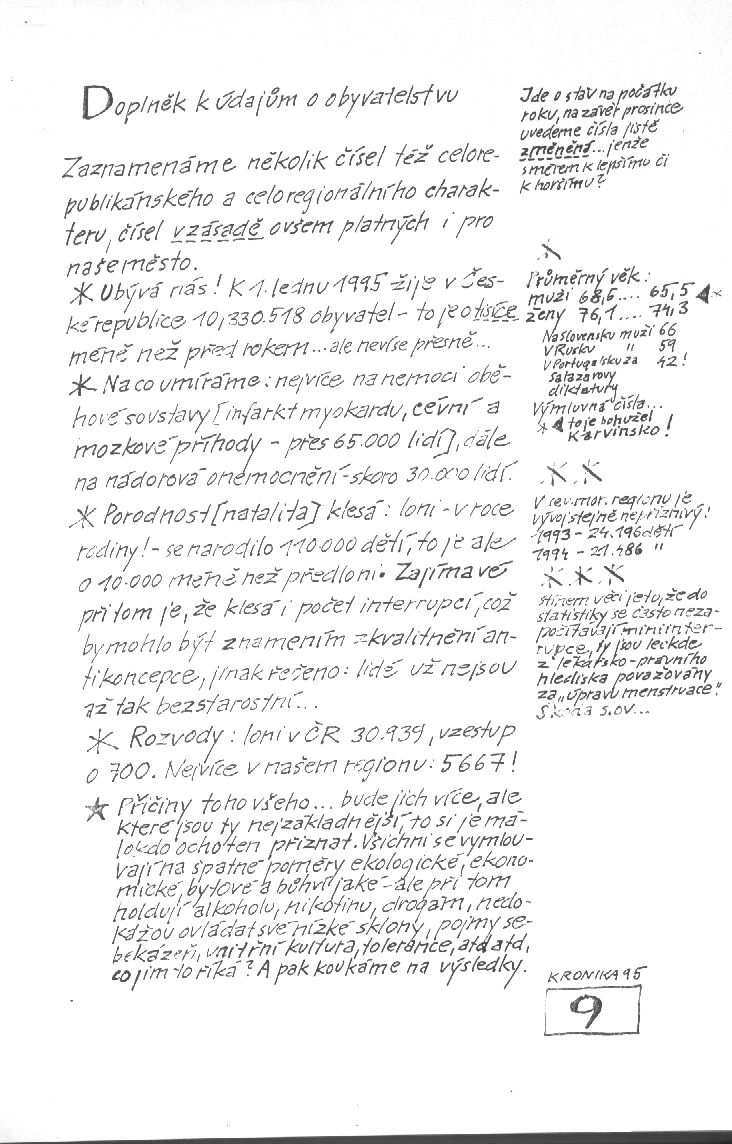 Doplněk k údajům o obyvatelstvu
Zaznamenáme několik čísel též celore-
publikánského a celoregionálního charak-
teru, čísel v zásadě ovšem platných i pro
naše město.
* Ubývá nás! K 1. lednu 1995 žije v Čes-
ké republice 10,330.518 obyvatel - to je o tisíce
méně než před rokem... ale neví se přesně...
* Na co umíráme: nejvíce na nemoci obě-
hové soustavy [infarkt myokardu, cévní a
mozkové příhody - přes 65.000 lidí], dále
na nádorová onemocnění - skoro 30.000 lidí.
* Porodnost [natalita] klesá: loni - v roce
rodiny! - se narodilo 110.000 dětí, to je ale
o 10.000 méně než předloni. Zajímavé
při tom je, že klesá i počet interrupcí, což
by mohlo být znamením zkvalitnění an-
tikoncepce, jinak řečeno: lidé už nejsou
až tak bezstarostní...
* Rozvody: loni v ČR 30.939, vzestup
o 700. Nejvíce v našem regionu: 5667!
★ Příčiny toho všeho... bude jich více, ale
které jsou ty nejzákladnější, to si je má-
lokdo ochoten přiznat. Všichni se vymlou-
vají na špatné poměry ekologické, ekono-
mické, bytové a bůhví jaké - ale při tom
holdují alkoholu, nikotinu, drogám, nedo-
kážou ovládat své nízké sklony, pojmy se-
bekázeň, vnitřní kultura, tolerance, atd atd,
co jim to říká? A pak koukáme na výsledky.
Jde o stav na počátku
roku, na závěr prosince
uvedeme čísla jistě
změněná... jenže
směrem k lepšímu či
k horšímu?
*
Průměrný věk:
muži 68,5.... 65,5 ◄*
ženy 76,1.... 74,3
Na Slovensku muži 66
V Rusku " 59
V Portugalsku za 42!
Salazarovy
diktatury
Výmluvná čísla...
*◄ to je bohužel
Karvinsko!
* *
V sev.mor. regionu je
vývoj stejně nepříznivý!
1993 - 24.196 dětí
1994 - 21.486 "
* * *
Stínem věci je to, že do
statistiky se často neza-
počítávají miniinter-
rupce, ty jsou leckde
z lékařsko-právního
hlediska považovány
za „úpravu menstruace".
Škoda slov...
KRONIKA 95
9